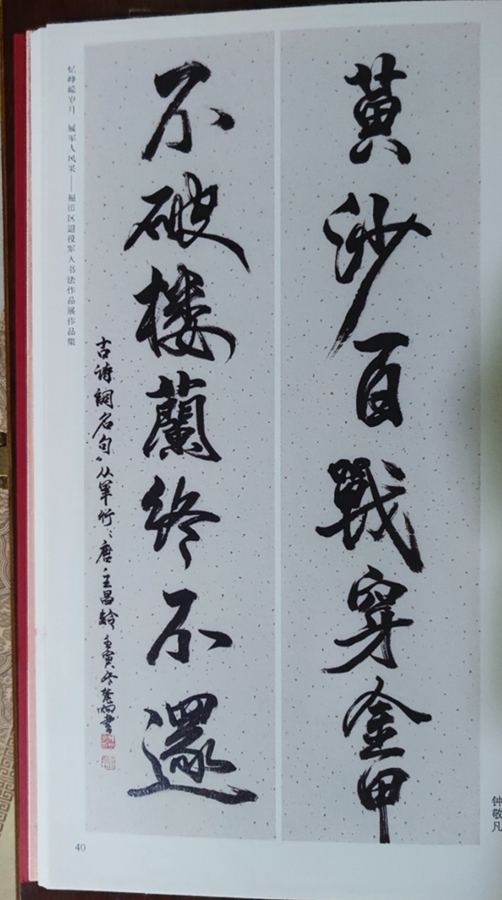 黄沙百戰穿金甲
不破楼蘭终不還
古诗词名句 从军行 唐 王昌龄 壬寅冬
忆峥嵘岁月 展军人风采——
区退役军人书法作品展作品集
钟敬凡
40